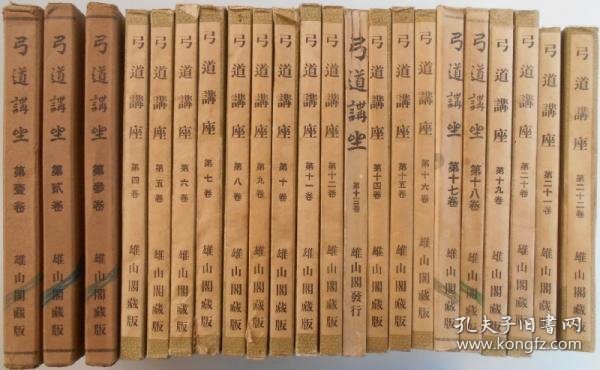 弓道講坐 第壹卷 雄山閣藏版
弓道講坐 第貳卷 雄山閣藏版
弓道講坐 第參卷 雄山閣藏版
弓道講座 第四卷 雄山閣藏版
弓道講座 第五卷 雄山閣藏版
弓道講座 第六卷 雄山閣藏版
弓道講座 第七卷 雄山閣藏版
弓道講座 第八卷 雄山閣藏版
弓道講座 第九卷 雄山閣藏版
弓道講座 第十卷 雄山閣藏版
弓道講座 第十一卷 雄山閣藏版
弓道講座 第十二卷 雄山閣藏版
弓道講坐 第十三卷 雄山閣發行
弓道講座 第十四卷 雄山閣藏版
弓道講座 第十五卷 雄山閣藏版
弓道講座 第十六卷 雄山閣藏版
弓道講坐 第十七卷 雄山閣藏版
弓道講坐 第十八卷 雄山閣藏版
弓道講座 第十九卷 雄山閣藏版
弓道講座 第二十卷 雄山閣藏版
弓道講座 第二十一卷 雄山閣藏版
弓道講座 第二十二卷 雄山閣藏版
孔夫子旧书网
www.kongfz.com